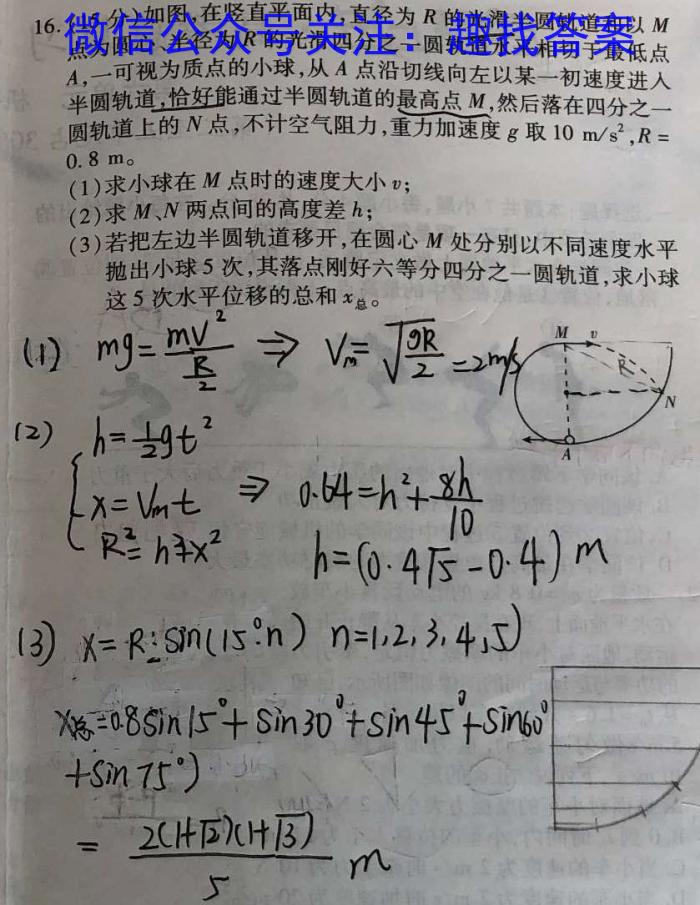 16. 分)如图,在竖直平面内,直径为 R 的光滑半圆轨道和以 M
微信公众号关注：趣找答案
点为圆心、半径为 R 的光滑四分之一圆轨道 最低点
A,一可视为质点的小球,从 A 点沿切线向左以某一初速度进入
半圆轨道,恰好能通过半圆轨道的最高点 M,然后落在四分之一
圆轨道上的 N 点,不计空气阻力,重力加速度 g 取 10 m/s²,R =
0.8 m。
(1)求小球在 M 点时的速度大小 v;
(2)求 M、N 两点间的高度差 h;
(3)若把左边半圆轨道移开,在圆心 M 处分别以不同速度水平
抛出小球 5 次,其落点刚好六等分四分之一圆轨道,求小球
这 5 次水平位移的总和 x总。
(1) mg=mv²/(R/2) ⇒ Vm=√(gR/2)=2m/s
M v
R
N
A
(2) h=½gt²
x=Vmt ⇒ 0.64=h²+8h/10
R²=h²+x²
h=(0.4√5-0.4) m
(3) x=R·sin(15°·n) n=1,2,3,4,5)
x总=0.8sin15°+sin30°+sin45°+sin60°
+sin75°)
= 2(1+√2)(1+√3)/5 m